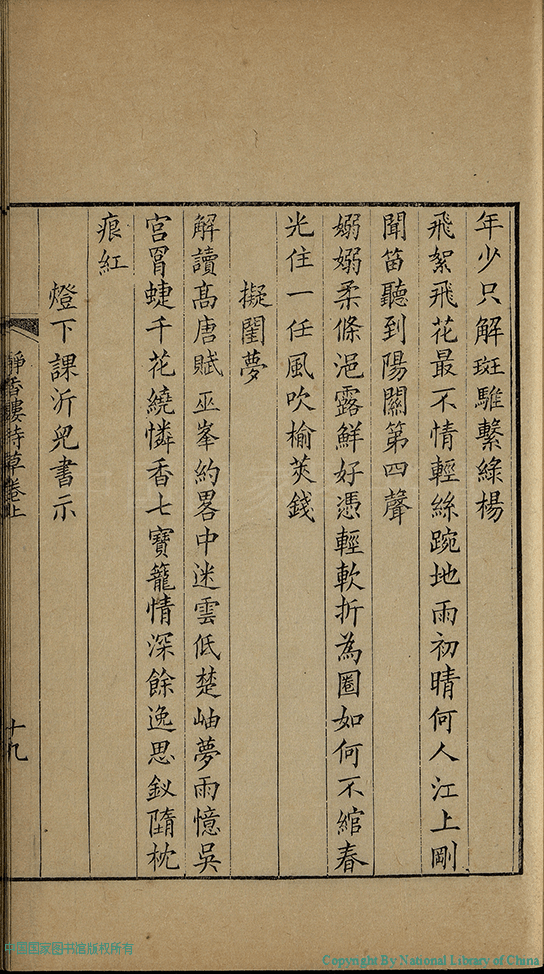 年少只解斑騅繫綠楊
飛絮飛花最不情輕絲踠地雨初晴何人江上剛
聞笛聽到陽關第四聲
嫋嫋柔條浥露鮮好憑輕軟折為圈如何不綰春
光住一任風吹榆莢錢
擬閨夢
解讀髙唐賦巫峯約畧中迷雲低楚岫夢雨憶吳
宮罥蜨千花繞憐香七寶籠情深餘逸思釵墮枕
痕紅
燈下課沂兒書示
靜香樓詩草卷上
十九
中国国家图书馆版权所有
Copyright By National Library of China